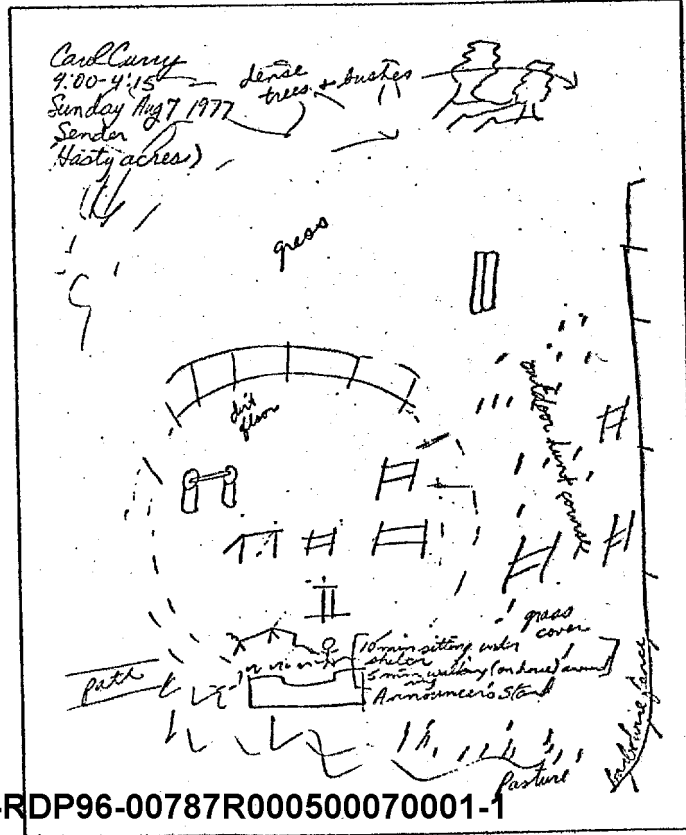 Carol Curry
9:00-4:15
Sunday Aug 7 1977
Sender
(Hasty acres)
dense
trees + bushes
grass
dirt
floor
outdoor hunt course
grass
cover
10 min sitting under
shelter
5 min walking (on horse) around
ring
Announcer's Stand
path
Pasture
barbwire fence
-RDP96-00787R000500070001-1